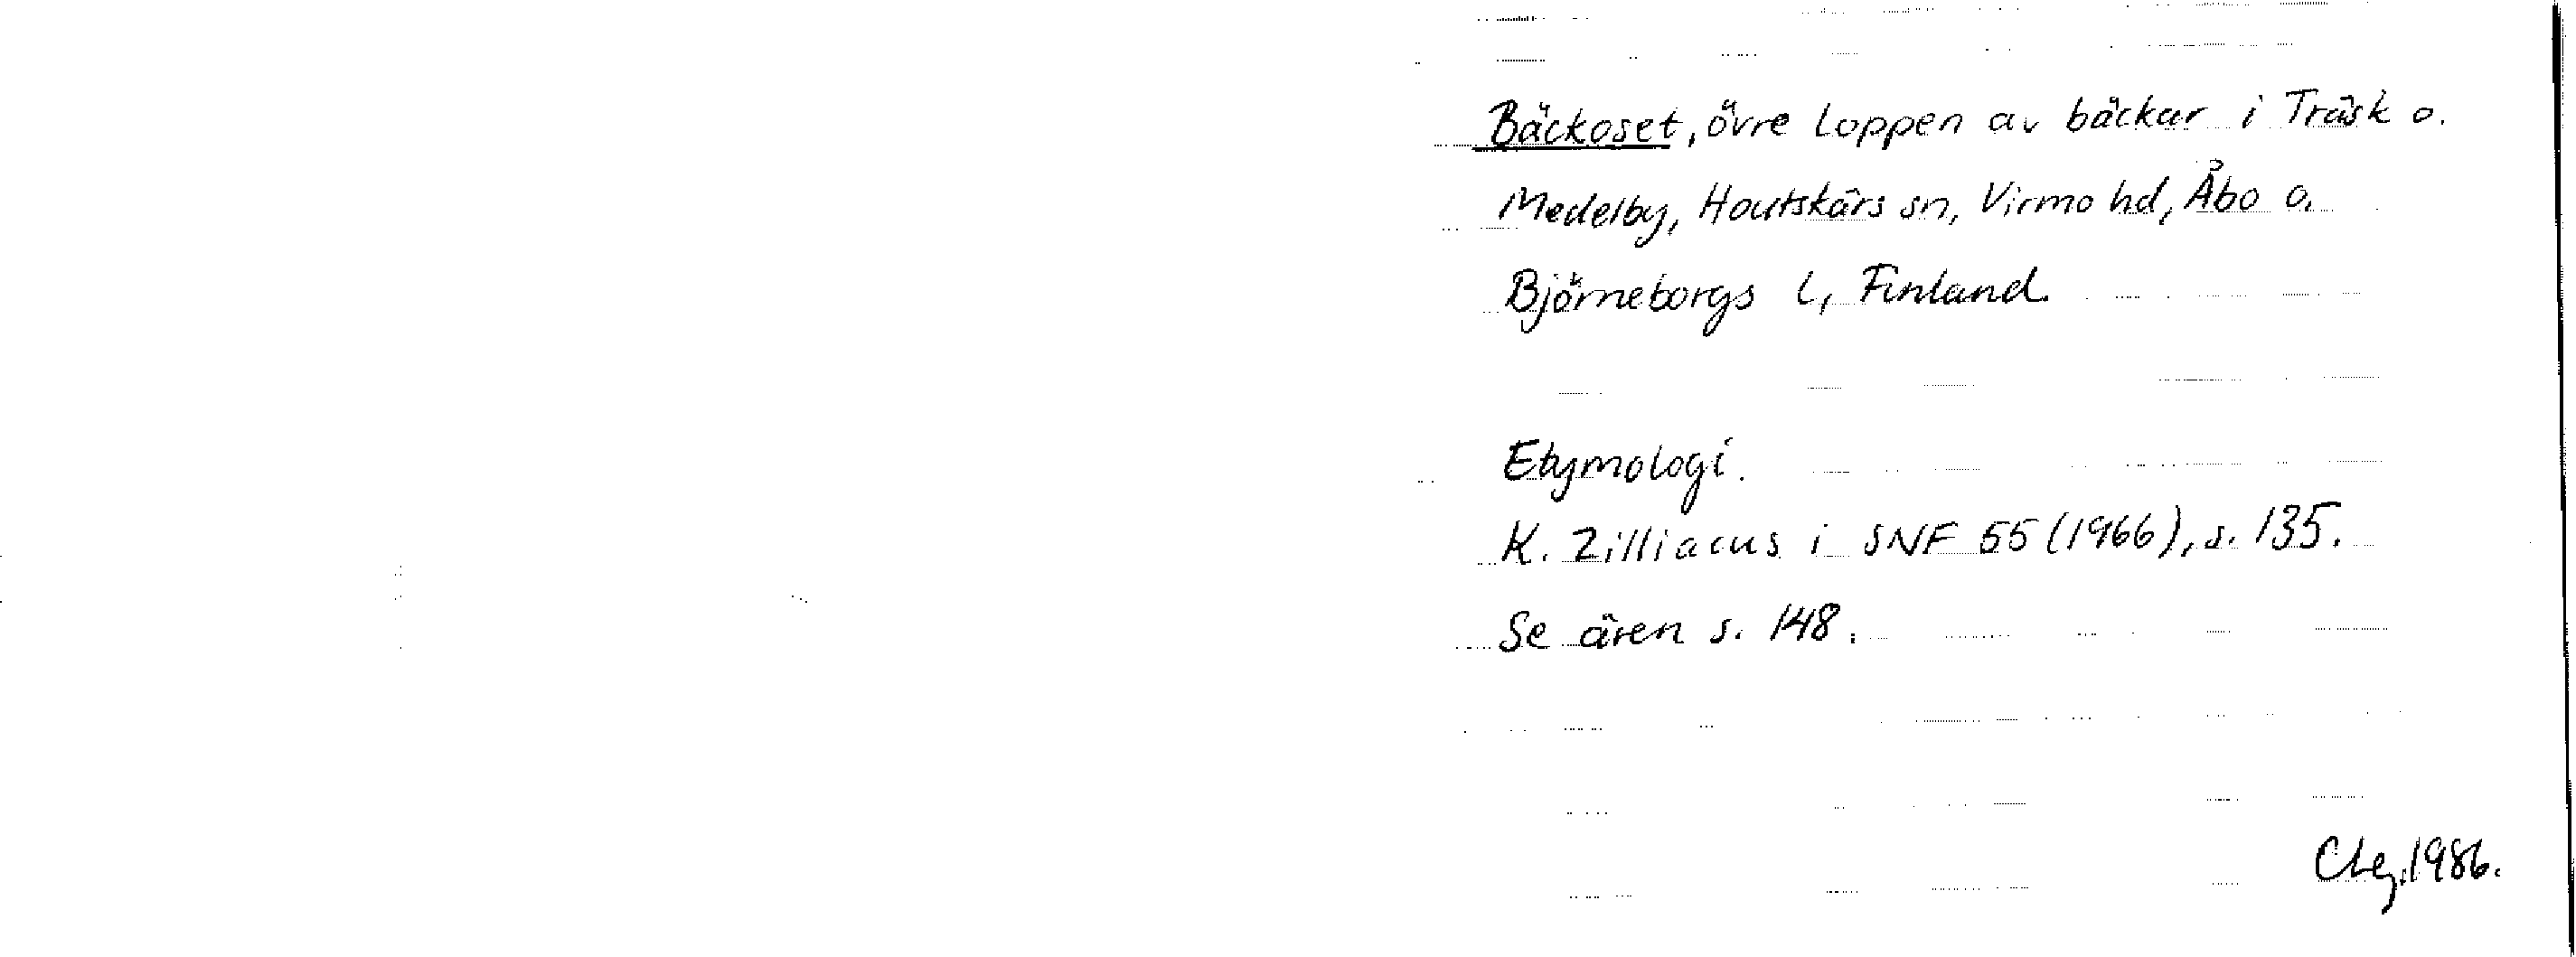 Bäckoset, övre loppen av bäckar i Träsk o.
Medelby, Houtskärs sn, Virmo hd, Åbo o.
Björneborgs l, Finland.
Etymologi.
K. Zilliacus i SNF 55 (1966), s. 135.
Se även s. 148.
1986.